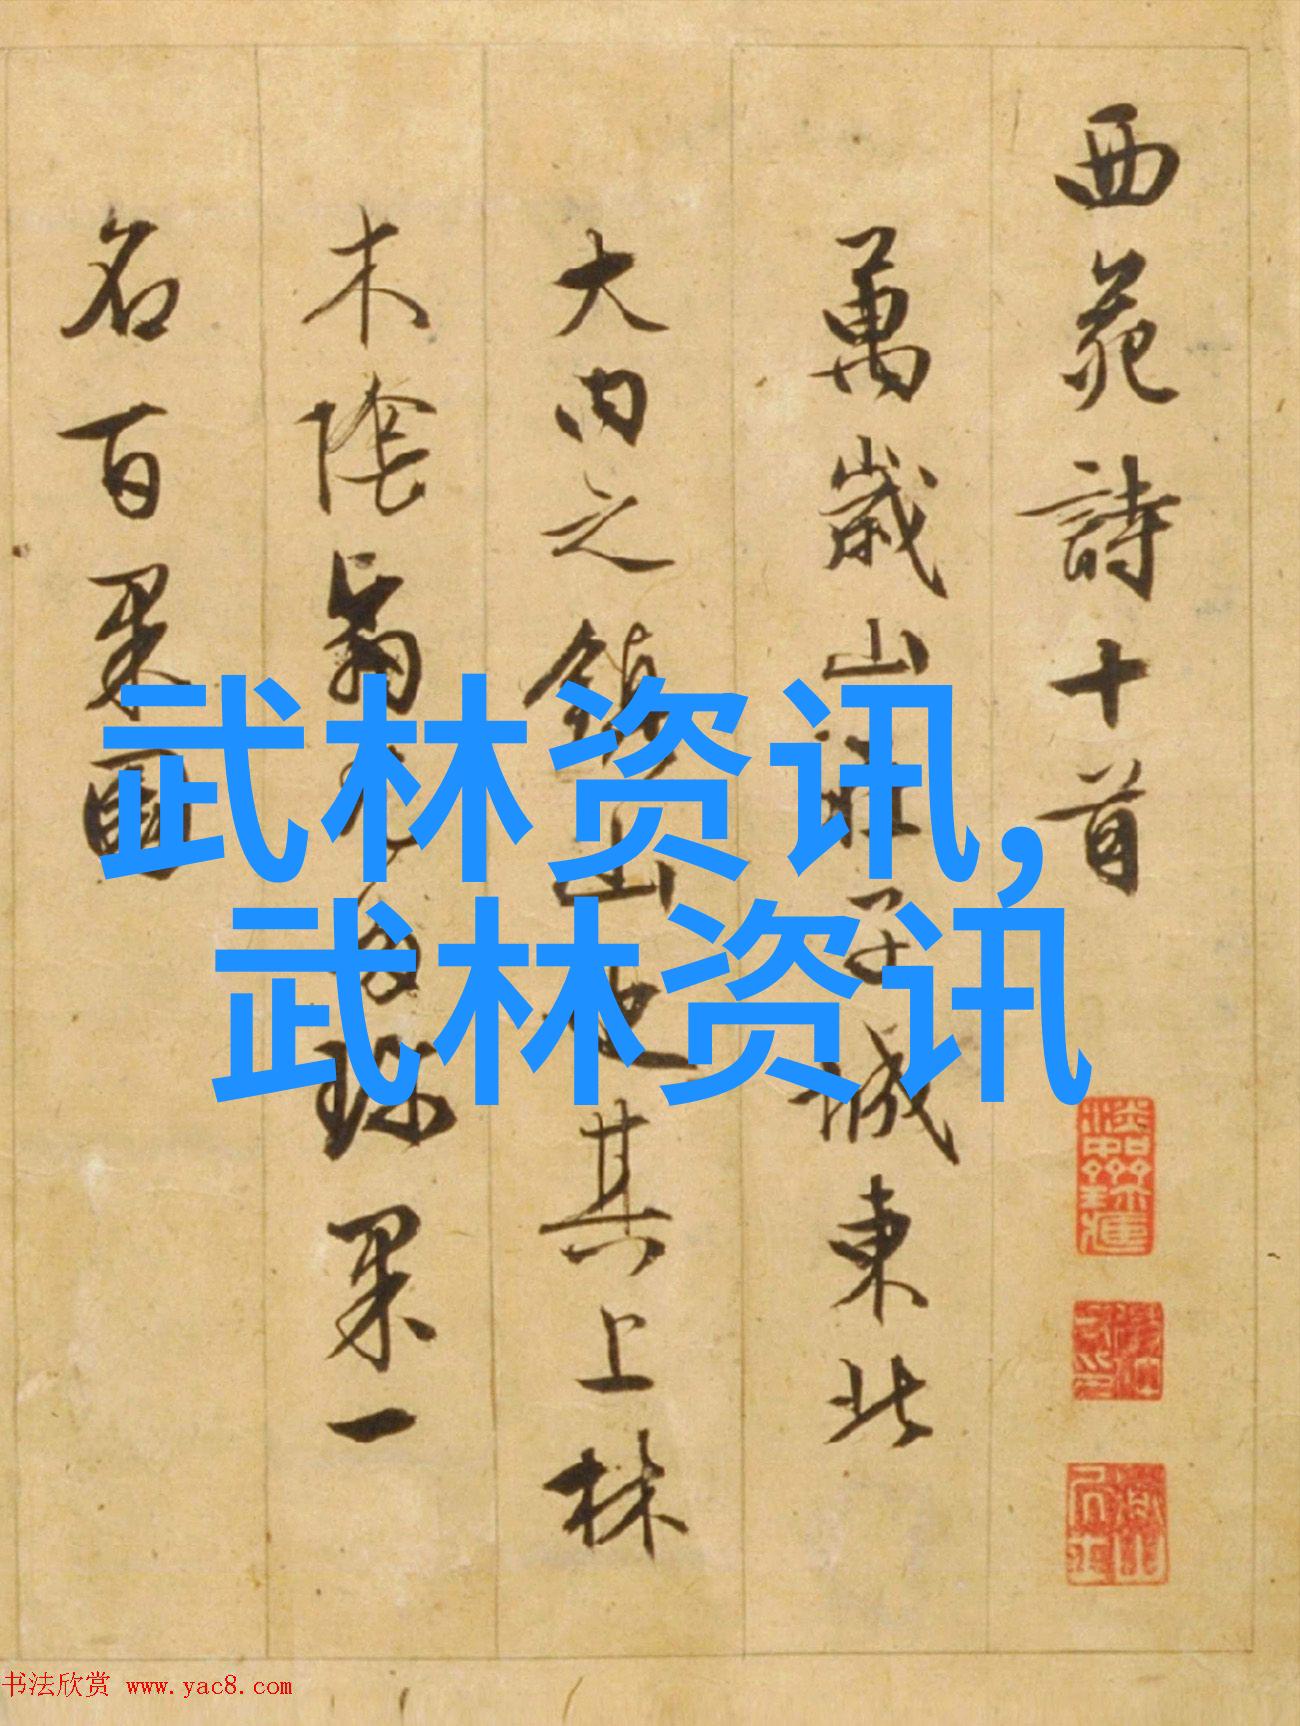 西苑詩十首
萬歲山在子城東北
大内之鎮山也其上林
木陰翳尤多珍果一
名百果園
武林资讯,
武林资讯
书法欣赏 www.yac8.com